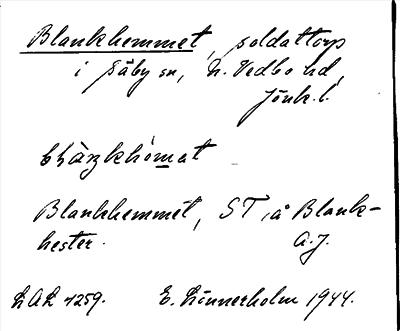 Blankhemmet, soldattorp
i Säby sn, N. Vedbo hd,
Jönk. l.
Blankhemmet, ST iå Blank-
hester. A.J.
LAL 1259. E. Linnerholm 1944.